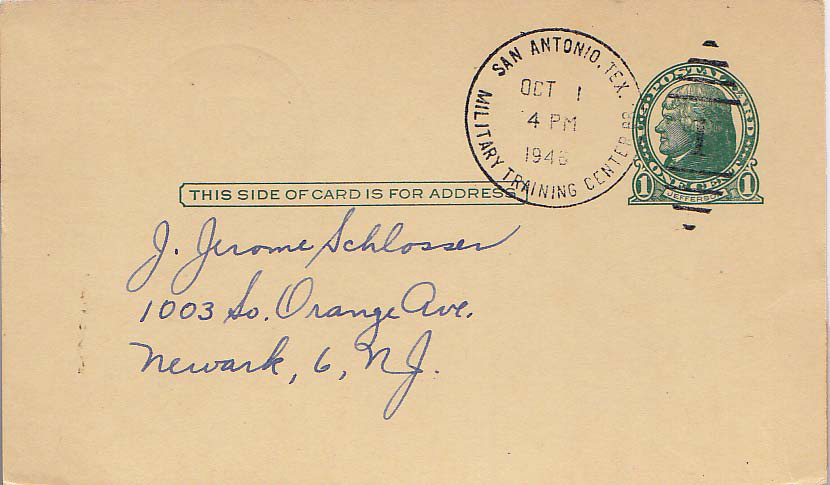 SAN ANTONIO, TEX.
OCT 1
4 PM
1946
MILITARY TRAINING CENTER BR.
U.S. POSTAL CARD
ONE CENT
1 JEFFERSON 1
THIS SIDE OF CARD IS FOR ADDRESS
J. Jerome Schlosser
1003 So. Orange Ave.
Newark, 6, N.J.